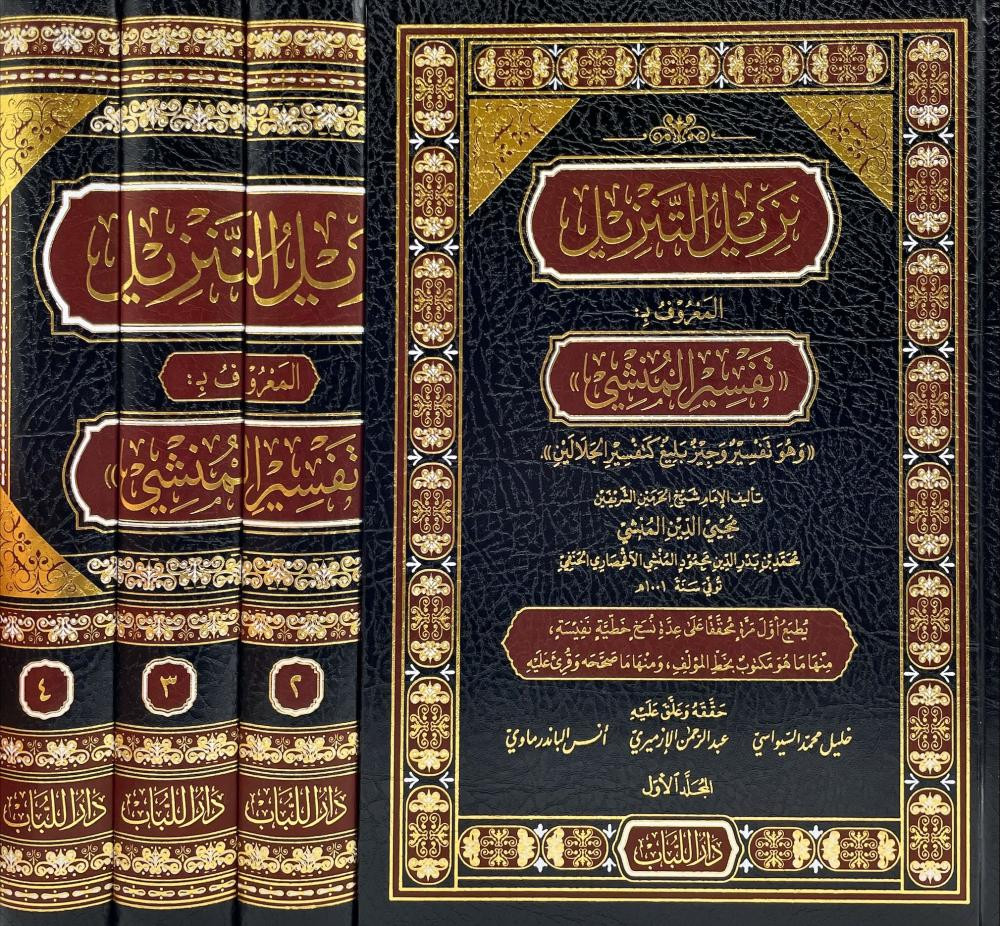 نزيل التنزيل
المعروف بـ:
«تفسير المنشي»
«وهو تفسير وجيز بليغ كتفسير الجلالين»
تأليف الإمام شيخ الحرمين الشريفين
محيي الدين المنشي
محمد بن بدر الدين محمود المنشي الآقحصاري الحنفي
توفي سنة ١٠٠١هـ
يطبع أول مرة محققا على عدة نسخ خطية نفيسة،
منها ما هو مكتوب بخط المؤلف، ومنها ما صححه وقرئ عليه
حققه وعلق عليه
خليل محمد السيواسي عبد الرحمن الإزميري أنس الباندرماوي
المجلد الأول
دار اللباب
يل التنزيل
المعروف بـ:
تفسير المنشي»
٢ ٣ ٤
دار اللباب دار اللباب دار اللباب